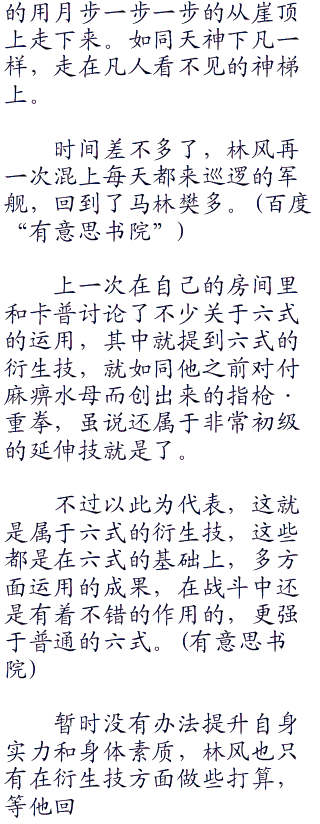 的用月步一步一步的从崖顶
上走下来。如同天神下凡一
样，走在凡人看不见的神梯
上。
时间差不多了，林风再
一次混上每天都来巡逻的军
舰，回到了马林樊多。(百度
“有意思书院”)
上一次在自己的房间里
和卡普讨论了不少关于六式
的运用，其中就提到六式的
衍生技，就如同他之前对付
麻痹水母而创出来的指枪·
重拳，虽说还属于非常初级
的延伸技就是了。
不过以此为代表，这就
是属于六式的衍生技，这些
都是在六式的基础上，多方
面运用的成果，在战斗中还
是有着不错的作用的，更强
于普通的六式。(有意思书
院)
暂时没有办法提升自身
实力和身体素质，林风也只
有在衍生技方面做些打算，
等他回